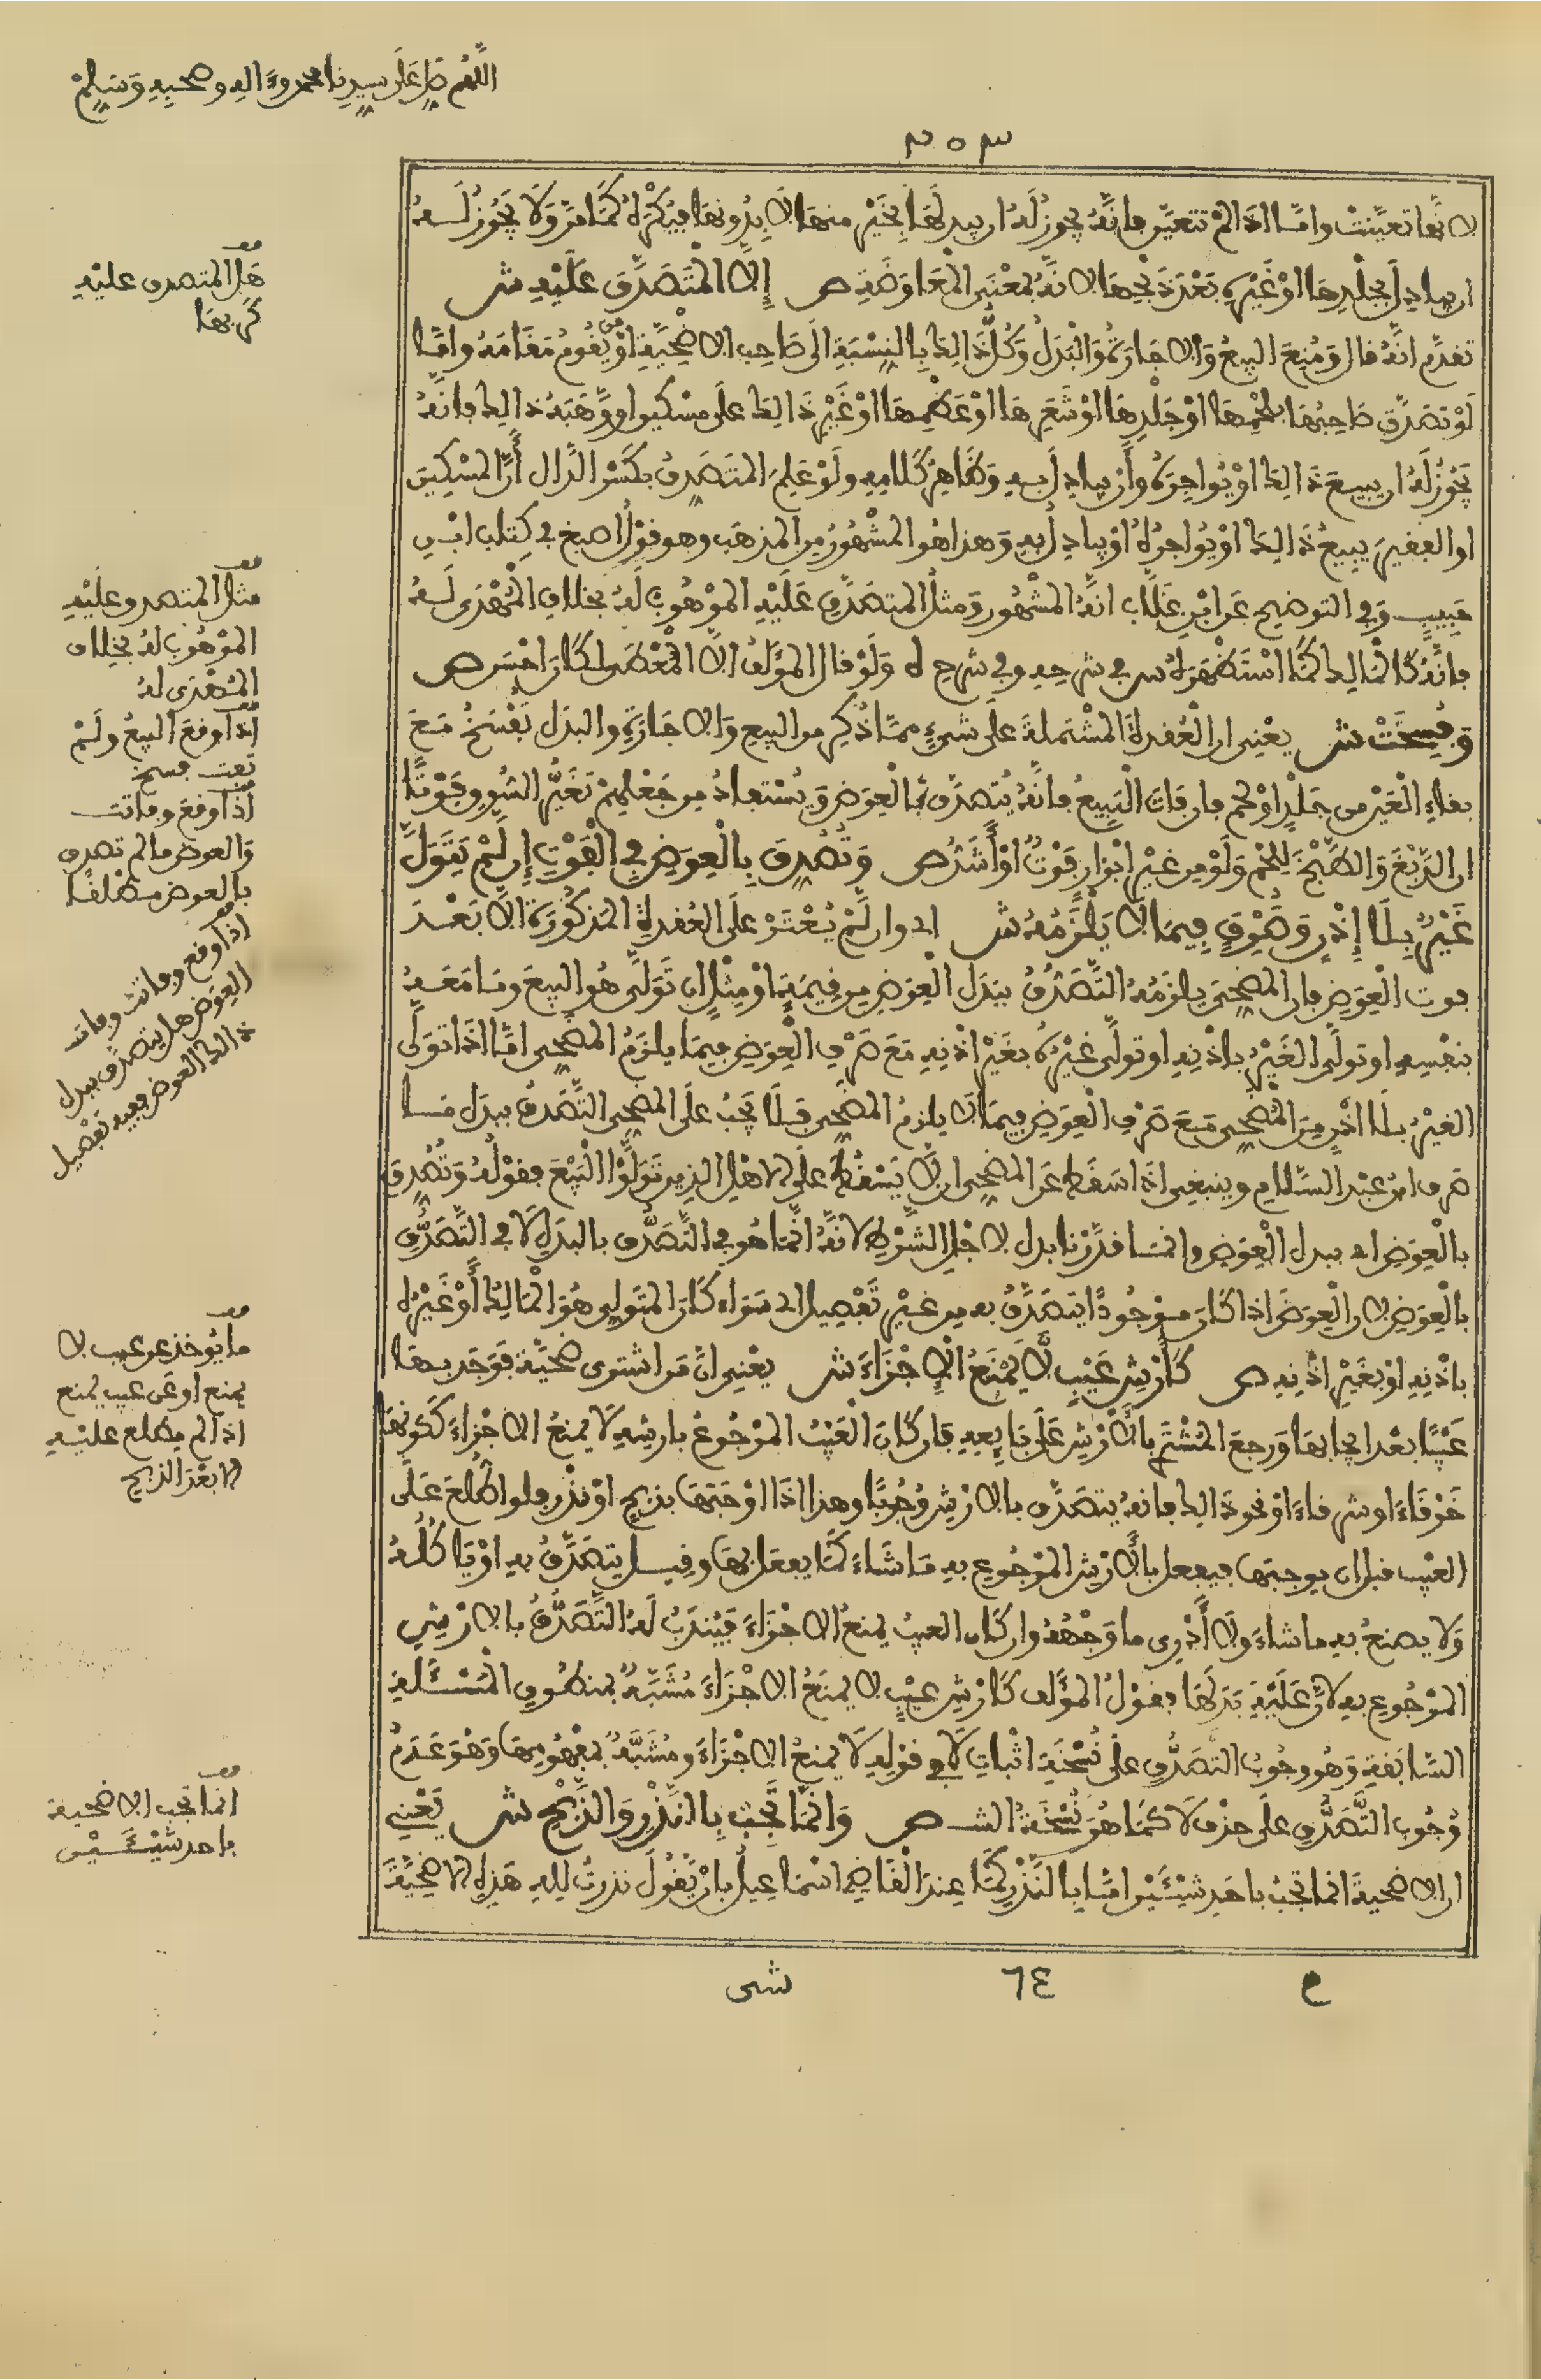 اللهم صل على سيدنا محمد وءاله وصحبه وسلم
٣٥٣
لانها تعينت واما اذا لم تتعين فانه يجوز له ان يبدلها بخير منها لا بدونها فيكره كما مر ولا يجوز له
ان يبادل بجلدها او غيره بعد ذبحها لانه بمعنى المعاوضة ص إلا المتصدق عليه ش
تقدم انه قال ومنع البيع والاجارة والبدل وكل ذالك بالنسبة الى صاحب الاضحية او من يقوم مقامه واما
لو تصدق صاحبها بلحمها او جلدها او شعرها او عظمها او غير ذالك على مسكين او وهبه ذالك فانه
يجوز له ان يبيع ذالك او يواجره وأن يبادل به وظاهر كلامه ولو علم المتصدق بكسر الدال أن المسكين
او الفقير يبيع ذالك او يواجره او يبادل به وهذا هو المشهور من المذهب وهو قول اصبغ في كتاب ابن
حبيب وفي التوضيح عن ابن غلاب انه المشهور ومثل المتصدق عليه الموهوب له بخلاف المهدى له
فانه كالمالك كما استظهره س في شرحه وفي شرح له ولو قال المؤلف الا المعطى لكان احسن ص
وفسخت ش يعني ان العقدة المشتملة على شيء مما ذكر من البيع والاجارة والبدل تفسخ مع
بقاء العين من جلد او لحم فان فات المبيع فانه يتصدق بالعوض ويستفاد من جعلهم تغير السوق فوتا
ان الدبغ والطبخ للحم ولو من غير ابزار فوت او أشد ص وتصدق بالعوض في الفوت إن لم يتول
غير بلا إذن وصرف فيما لا يلزمه ش اي وان لم يعثر على العقدة المذكورة الا بعد
فوت العوض فان المضحي يلزمه التصدق ببدل العوض من قيمة او مثل ان تولى هو البيع وما معه
بنفسه او تولى الغير باذنه او تولى غيره بغير اذنه مع صرف العوض فيما يلزم المضحي اما اذا تولى
الغير بلا اذن من المضحي مع صرف العوض فيما لا يلزم المضحي فلا يجب على المضحي التصدق ببدل ما
صرف ابن عبد السلام وينبغي اذا سقط عن المضحي ان لا يسقط على الاهل الذين تولوا البيع فقوله وتصدق
بالعوض اي ببدل العوض وانما قدرنا بدل لاجل الشرط لانه انما هو في التصدق بالبدل لا في التصدق
بالعوض لان العوض اذا كان موجودا يتصدق به من غير تفصيل اي سواء كان المتولي هو المالك أو غيره
باذنه او بغير اذنه ص كأرش عيب لا يمنع الإجزاء ش يعني ان من اشترى ضحية فوجد بها
عيبا بعد ايجابها ورجع المشتري بالأرش على بايعه فان كان العيب المرجوع بارشه لا يمنع الاجزاء ككونها
خرقاء او شرقاء او نحو ذالك فانه يتصدق بالارش وجوبا وهذا اذا اوجبها بذبح او نذر فلو اطلع على
العيب قبل ان يوجبها فيفعل بالأرش المرجوع به ما شاء كما يفعل بها وقيل يتصدق به او ياكله
ولا يصنع به ما شاء ولا أدري ما وجهه وان كان العيب يمنع الاجزاء فيندب له التصدق بالارش
المرجوع به لان عليه بدلها فقول المؤلف كأرش عيب لا يمنع الاجزاء مشبه بمنطوق المسئلة
السابقة وهو وجوب التصدق على نسخة اثبات لا في قوله لا يمنع الاجزاء ومشبه بمفهومها وهو عدم
وجوب التصدق على حذف لا كما هو نسخة الش ص وانما تجب بالنذر والذبح ش يعني
ان الاضحية انما تجب باحد شيئين اما بالنذر كما عند القاضي اسماعيل بان يقول نذرت لله هذه الاضحية
ع ٦٤ شى
قف
هل المتصدق عليه
كربها
قف
مثل المتصدق عليه
الموهوب له بخلاف
المهدى له
قف
اذا وقع البيع ولم
تفت فسخ
اذا وقع وفاتت
والعوض فالم تصدق
بالعوض مطلقا
اذا وقع وفاتت وفات
العوض هل يتصدق ببدل
ذالك العوض فيه تفصيل
قف
ما يوخذ عن عيب لا
يمنع او عن عيب يمنع
اذا لم يطلع عليه
الا بعد الذبح
قف
انما تجب الاضحية
باحد شيئين